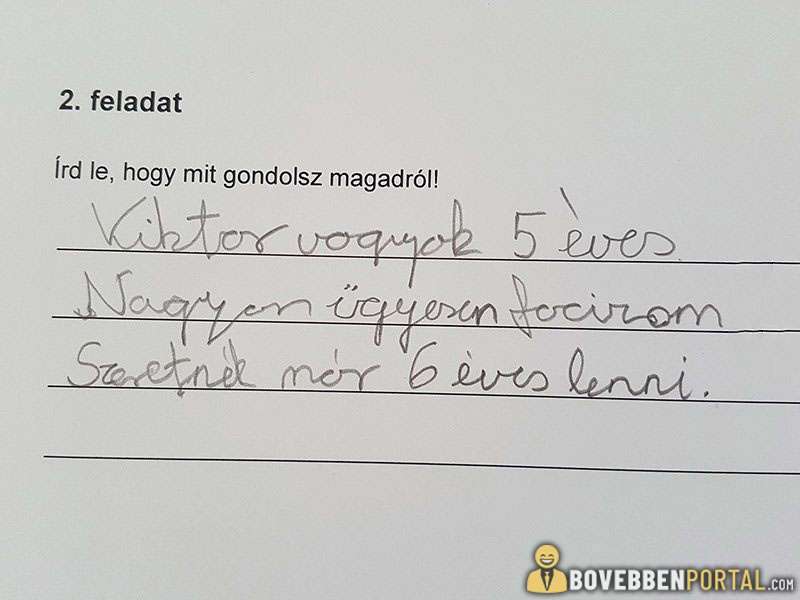 2. feladat
Írd le, hogy mit gondolsz magadról!
Viktor vagyok 5 éves.
Nagyon ügyesen focizom
Szeretnék már 6 éves lenni.
BOVEBBENPORTAL.COM